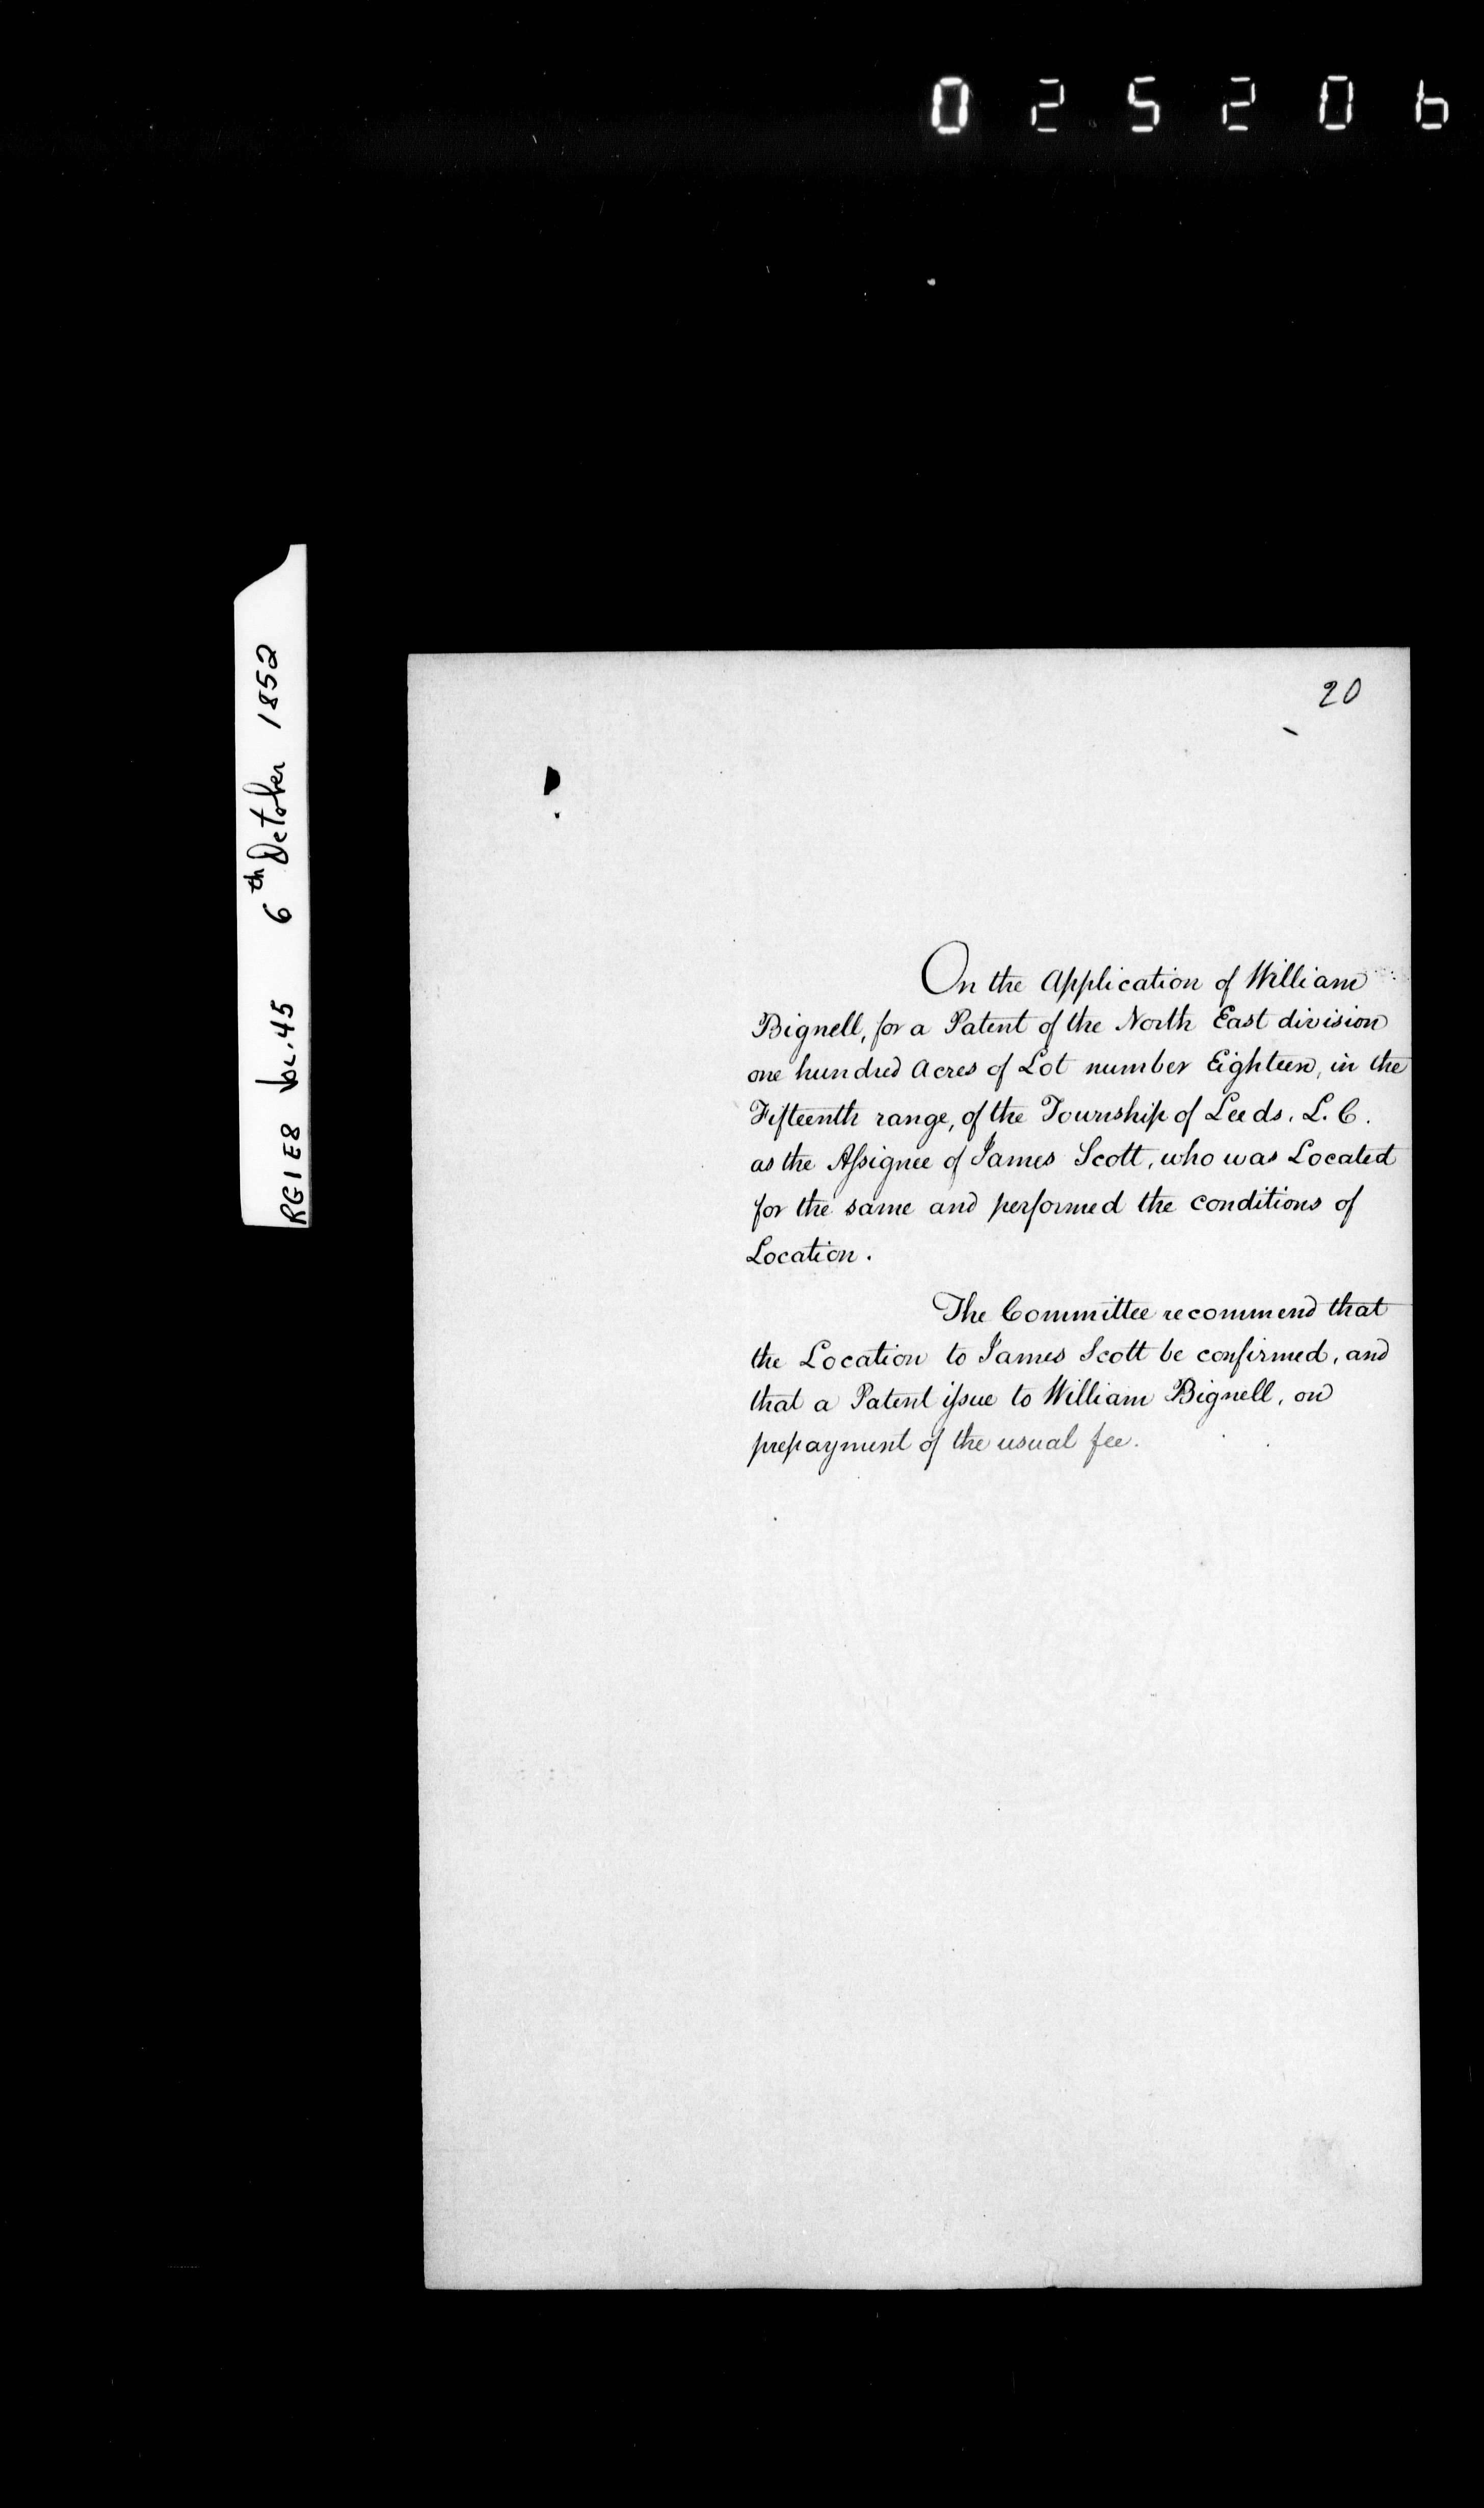 025206
RG1 E8 Vol. 45 6th October 1852
20
On the Application of William
Bignell, for a Patent of the North East division
one hundred Acres of Lot number Eighteen, in the
Fifteenth range, of the Township of Leeds. L. C.
as the Assignee of James Scott, who was Located
for the same and performed the conditions of
Location.
The Committee recommend that
the Location to James Scott be confirmed, and
that a Patent issue to William Bignell, on
prepayment of the usual fee.